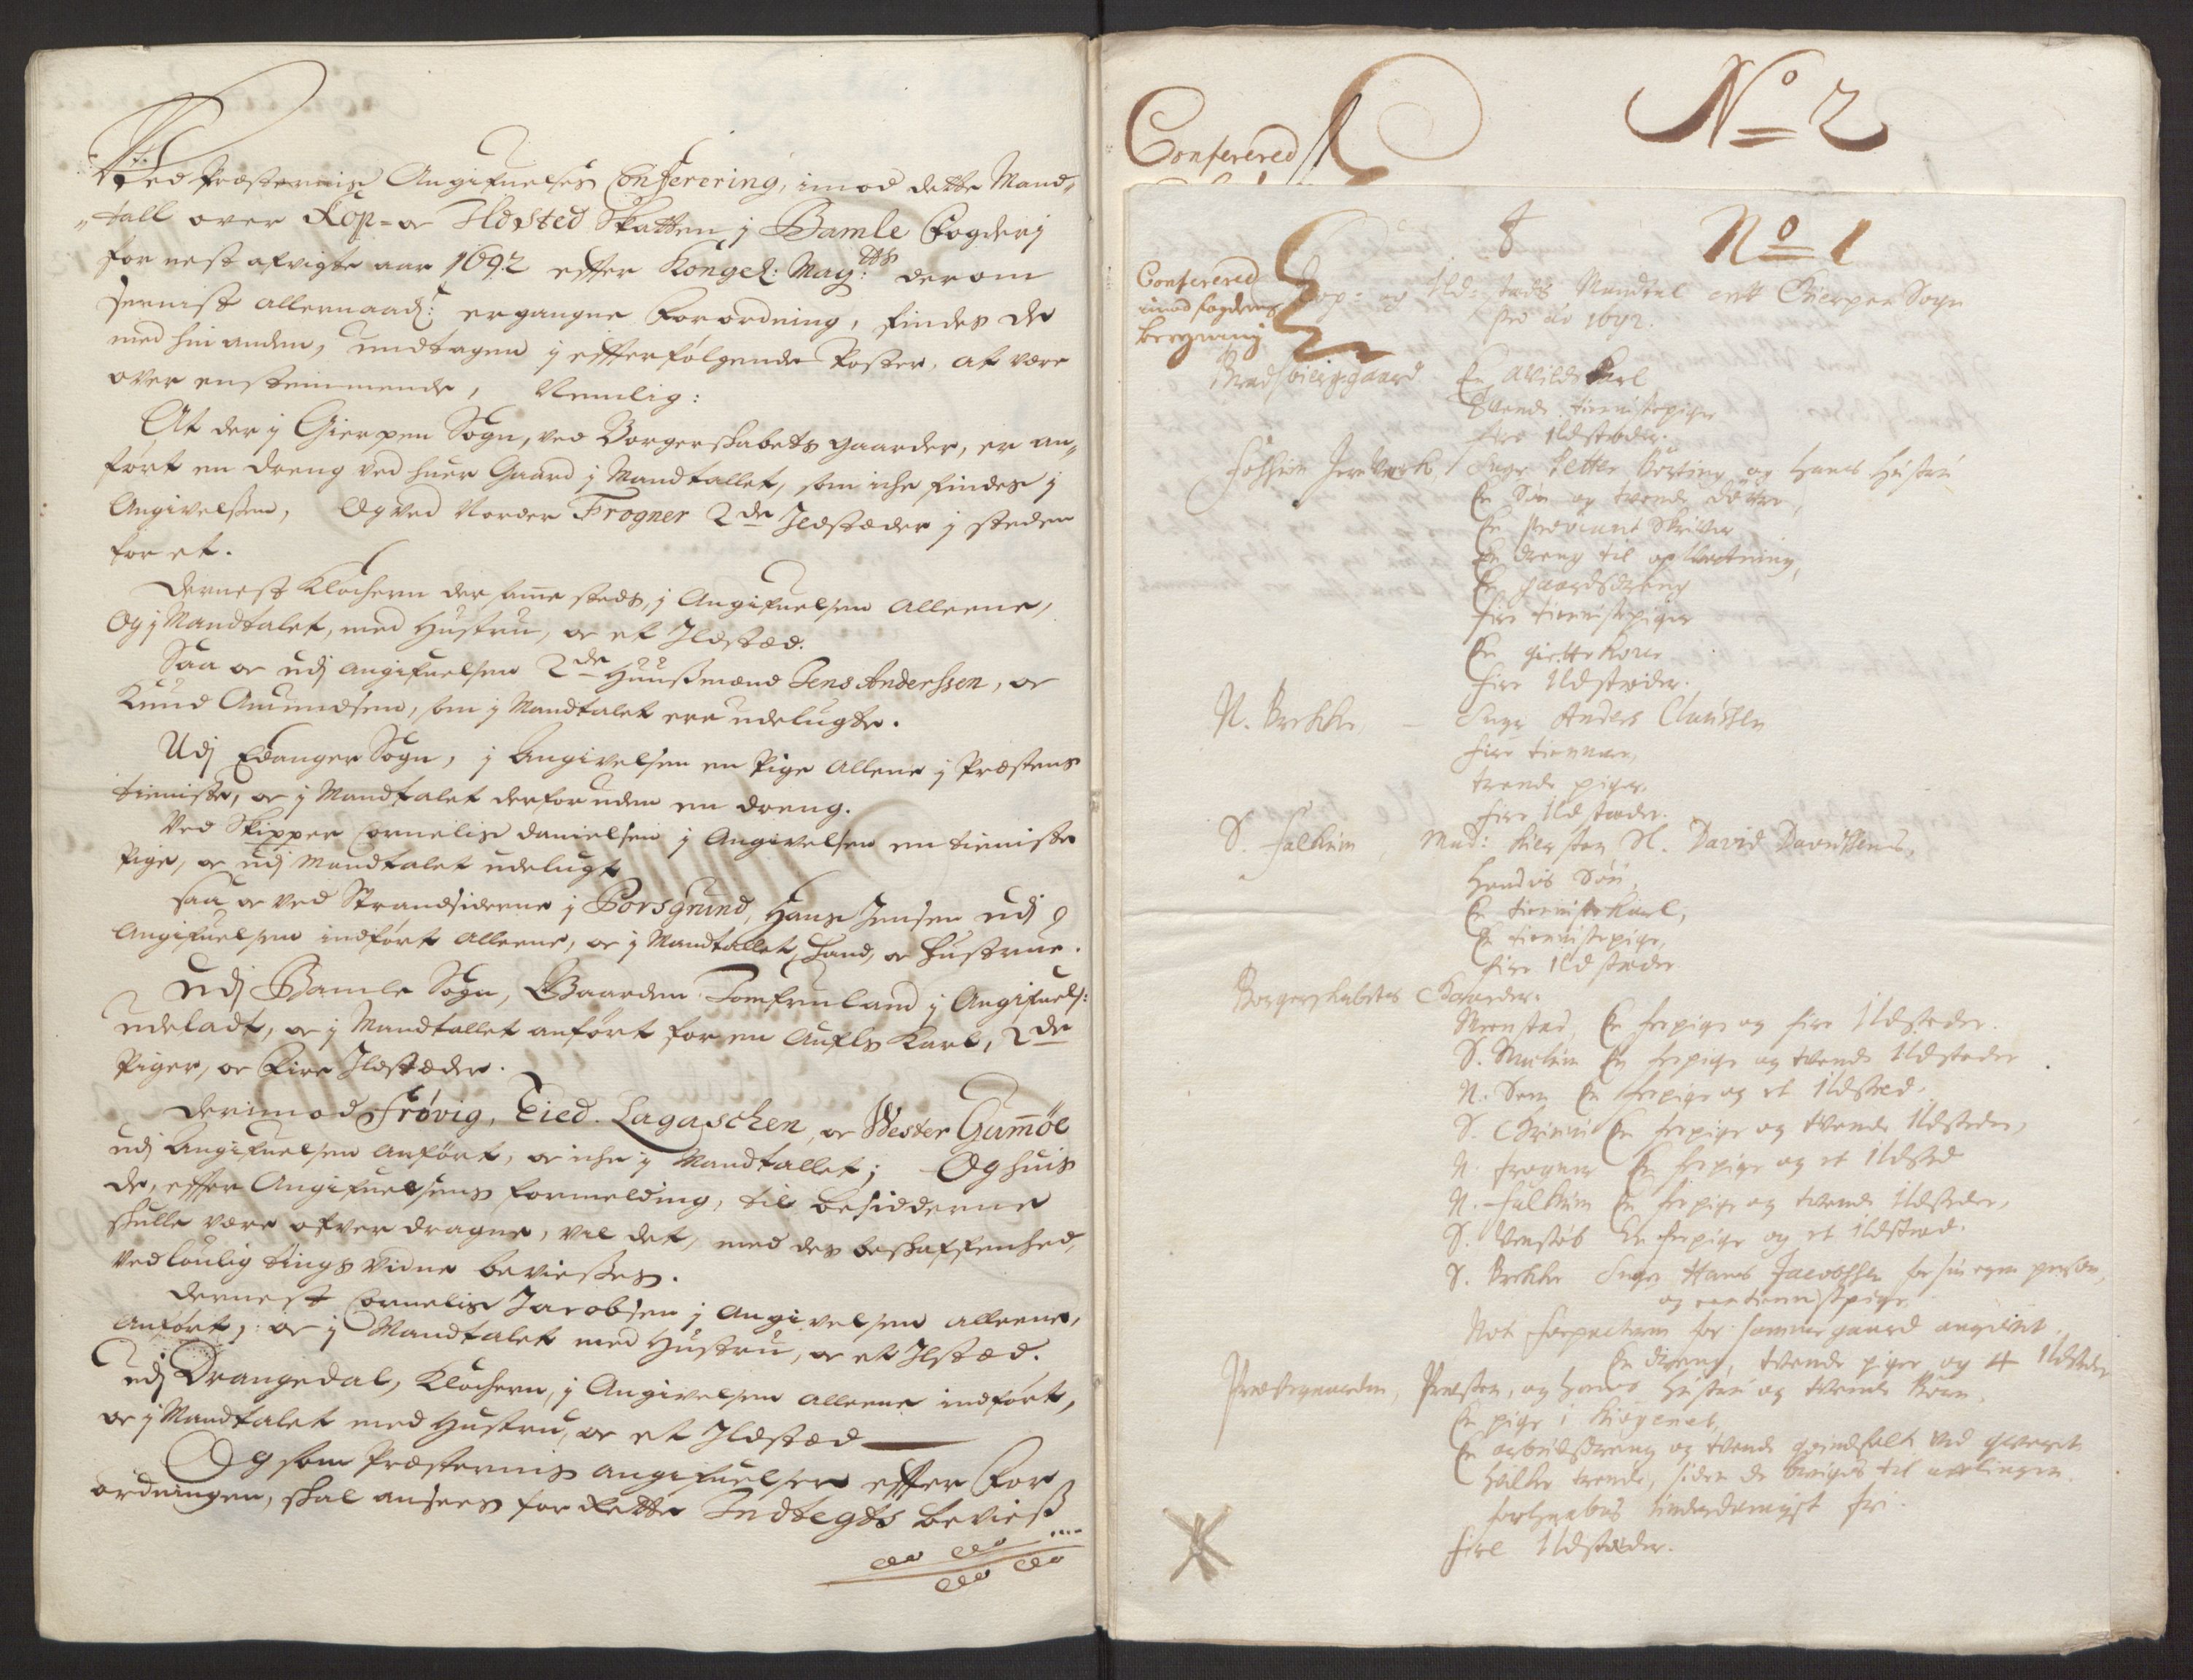 Ved Præsternis Angifuelses Conferering, imod dette Mand„
„tall over Kop- oc Ildsted Skatten j Bamle Fogderj
for nest afvigte aar 1692 effter Kongel: May:tts derom
sernist allernaad: ergangne Forordning, findes de
med hin anden, undtagen j effterfølgende Poster, at være
over ensstemmende, Nemlig:
At der j Gierpen Sogn, ved Borgerskabets gaarder, er an„
ført en dreng ved huer Gaard j Mandtallet, som iche findes j
Angivelssen, Og ved Norder Frogner 2de Ildstæder j steden
for et.
Dernest Klochern der samme steds, j Angifuelsen alleene,
Og j Mandtalet, med Hustru, oc et Ildstæd.
Saa oc udj angifuelsen 2de Huußmænd Jens Anderssen, oc
Knud Amundsen, som j Mandtalet ere udelugte.
Udj Edanger Sogn, j Angivelsen en Pige allene j Præstens
tienniste, oc j Mandtalet derforuden en dreng.
Ved Skipper Cornelis Danielsen j Angivelsen en tieniste
Pige, oc udj Mandtalet udelugt
Saa oc ved Strandsiderne j Porsgrund, Hans Jensen udj
Angifuelsen indført alleene, oc j Mandtallet, Hand, oc Hustrue.
Udj Bamle Sogn, Gaarden Tomfrunland j Angifuels:
udeladt, oc j Mandtallet anført for en Aufls Karl, 2de
Piger, oc Fire Ildstæder.
Derimod Frøvig, Eied. Lagaschen, oc Wester Gumøe
udj Angifuelsen anført, oc iche j Mandtallet; Og huis
de, effter Angifuelsens formelding, til besidderne
skulle være ofver dragne, vil det, med des beskaffenhed,
ved loulig tings vidne bevisses.
Dernest Cornelis Jacobsen j Angivelsen alleene,
anført, oc j Mandtalet med Hustru, oc et Ilstæd.
Udj Drangedal, Klochern, j Angivelsen alleene indført,
oc j Mandtalet med Hustru, oc et Ildstæd
Og som Præsternis angifuelser effter For
ordningen, skal ansees for Rette Indtegts beviiß
Conferered
No 2
8
No 1
Conferered
imod fogdens
beregning
Kop: og Ild: steds Mandtal ofr Gierpen Sogn
pro Ao 1692.
Bradsbierggaard En Avilds Karl
Tvende tienistepiger
fire ildstæder.
Fossum Jernverk, Sigr Petter Börting og hans Hustru
En Søn og tvende døttre,
En proviant Skriver
En dreng til opvartning,
En gaardsdreng
fire tienistepiger
En giette Kone
fire ildstæder.
N. Brekke, – Sigr Anders Clausen
fire tiennere,
trende piger,
fire ildstæder.
S. Falkum, Mad: Kiersten Sl. David Davidssens,
Hendes Søn,
En tienistekarl,
En tienistepige,
fire ildstæder
Borgerskabetes Gaarder:
Meenstad, En fepige og fire ildstæder.
S. Mælum En fepige og tvende ildstæder
N. Sem En fepige og et ildsted.
S. Grini En fepige og tvende ildstæder,
N. Frogner En fepige og et ildsted
N. Falkum En fepige og tvende ildstæder,
S. Venstøb En fepige og et ildsted.
S. Brekke Sigr Hans Jacobssen for sin egen person,
og een tienistpige,
Not forpactern for samme gaard angivet
En dreng, tvende piger og 4 ildstæder
Præstegaarden, Præsten, og hans Hustru og tvende Børn.
En pige i Kiøgenet,
En arbeidsdreng og tvende qvindfolk ved qveget
hvilke trende, siden de bruges til avlingen
forhaabes underdanigst fri.
fire ildstæder.